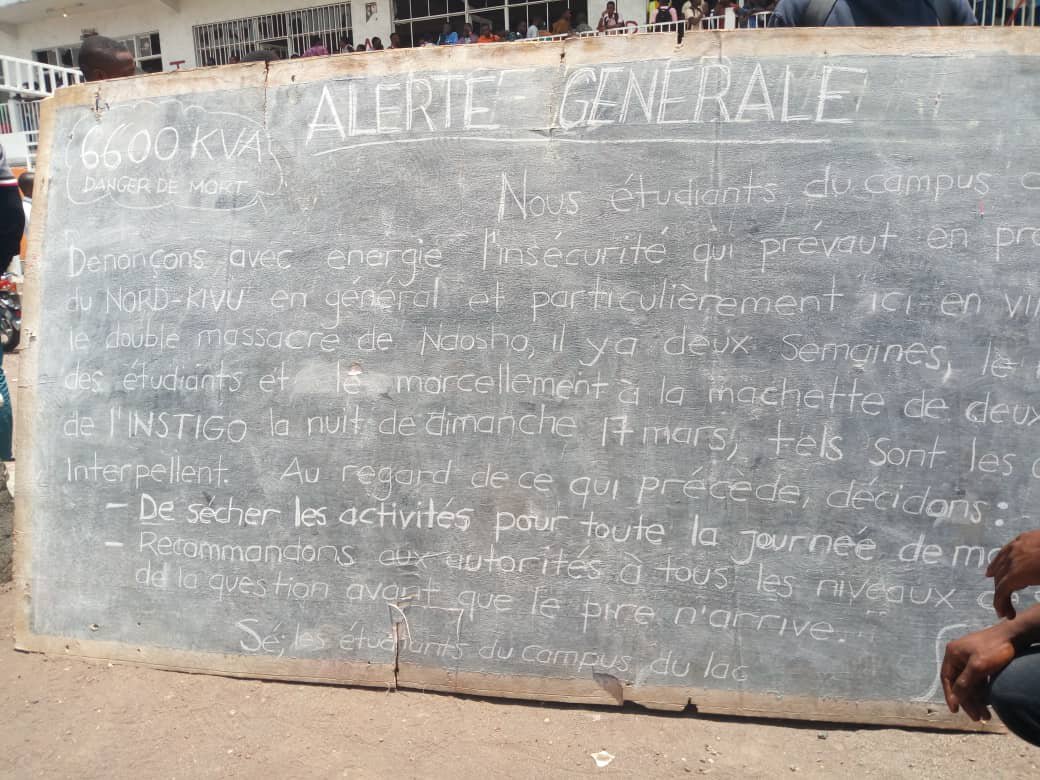 ALERTE - GENERALE
6600 KVA
DANGER DE MORT
Nous étudiants du campus
Denonçons avec energie l'insécurité qui prévaut en pro
du NORD-KIVU en général et particulièrement ici en vil
le double massacre de Ndosho, il ya deux semaines, le
des étudiants et le morcellement à la machette de deux
de l'INSTIGO la nuit de dimanche 17 mars, tels sont les
Interpellent. Au regard de ce qui précède, décidons :
- De sécher les activités pour toute la journée de ma
- Recommandons aux autorités à tous les niveaux
de la question avant que le pire n'arrive.
Sé, les étudiants du campus du lac